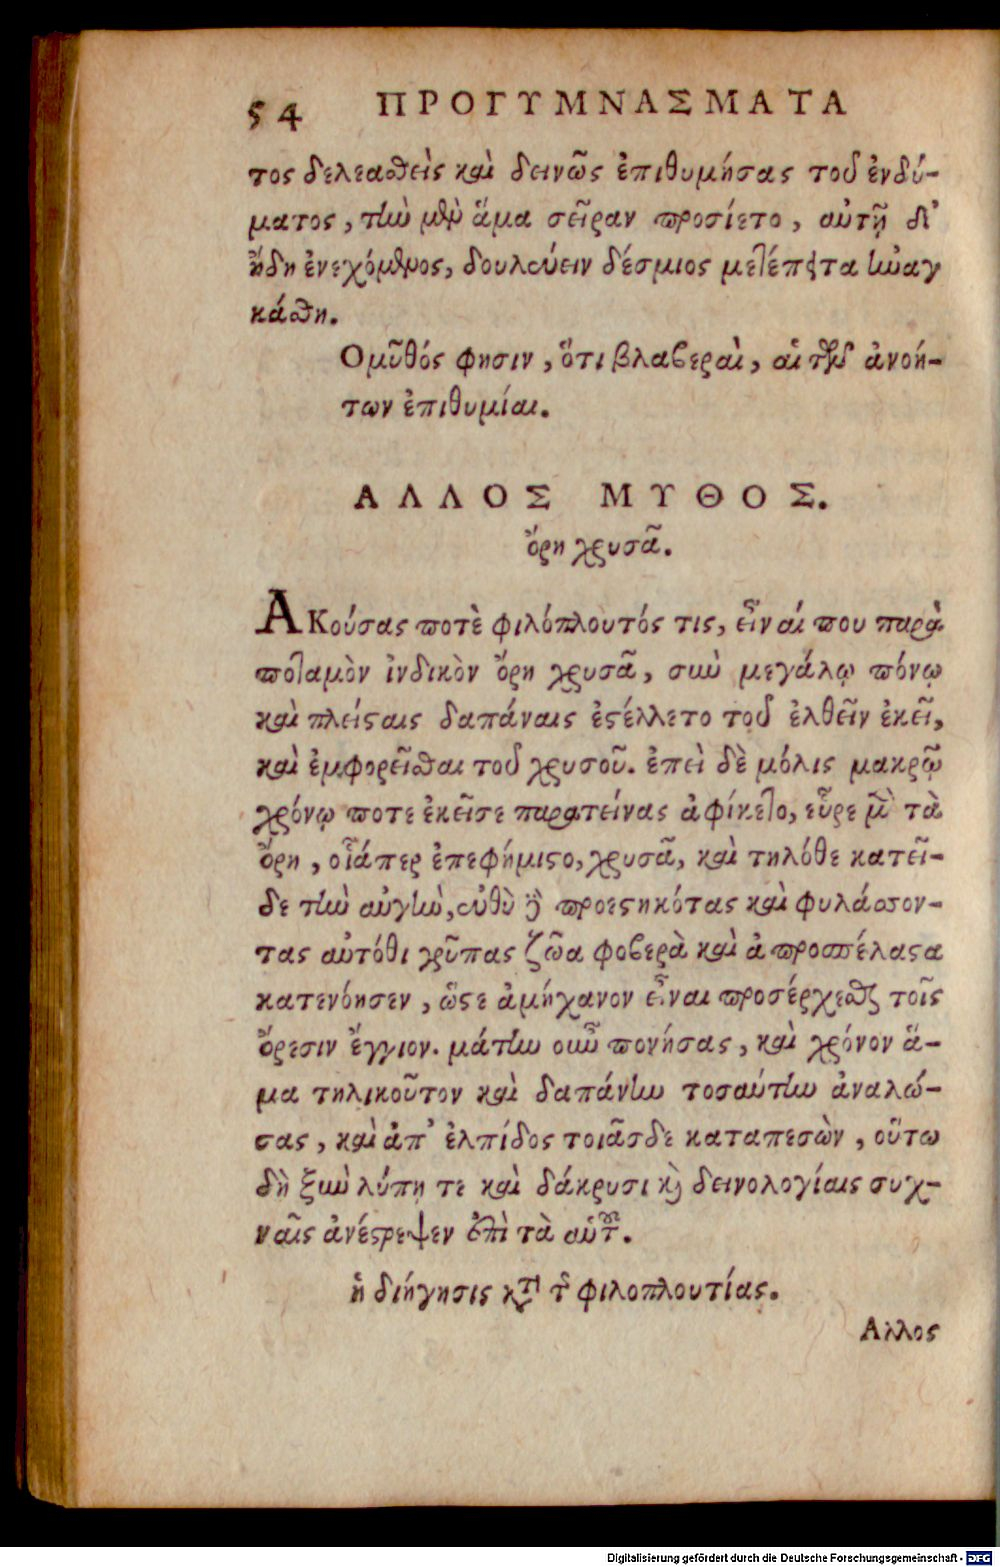 54 ΠΡΟΓΥΜΝΑΣΜΑΤΑ
τος δελεασθεὶς καὶ δεινῶς ἐπιθυμήσας τοῦ ἐνδύ-
ματος, τὴν μὲν ἅμα σεῖραν προσίετο, αὐτῇ δ'
ἤδη ἐνεχόμενος, δουλεύειν δέσμιος μετέπειτα ἠναγ
κάσθη.
Ὁμῦθός φησιν, ὅτι βλαβεραὶ, αἱ τῶν ἀνοή-
των ἐπιθυμίαι.
ΑΛΛΟΣ ΜΥΘΟΣ.
ὄρη χρυσᾶ.
ΑΚούσας ποτὲ φιλόπλουτός τις, εἶναί που παρὰ
ποταμὸν ἰνδικὸν ὄρη χρυσᾶ, σὺν μεγάλῳ πόνῳ
καὶ πλείσταις δαπάναις ἐστέλλετο τοῦ ἐλθεῖν ἐκεῖ,
καὶ ἐμφορεῖσθαι τοῦ χρυσοῦ. ἐπεὶ δὲ μόλις μακρῷ
χρόνῳ ποτε ἐκεῖσε παρατείνας ἀφίκετο, εὗρε μὲν τὰ
ὄρη, οἷάπερ ἐπεφήμιστο, χρυσᾶ, καὶ τηλόθε κατεῖ-
δε τὴν αὐγὴν, εὐθὺ δὲ προεστηκότας καὶ φυλάσσον-
τας αὐτόθι γρῦπας ζῶα φοβερὰ καὶ ἀπροσπέλαστα
κατενόησεν, ὥστε ἀμήχανον εἶναι προσέρχεσθαι τοῖς
ὄρεσιν ἔγγιον. μάτην οὖν πονήσας, καὶ χρόνον ἅ-
μα τηλικοῦτον καὶ δαπάνην τοσαύτην ἀναλώ-
σας, καὶ ἀπ' ἐλπίδος τοιᾶσδε καταπεσὼν, οὕτω
δὴ ξὺν λύπῃ τε καὶ δάκρυσι καὶ δεινολογίαις συχ-
ναῖς ἀνέστρεψεν ἐπὶ τὰ αὑτοῦ.
ἡ διήγησις κατὰ τῆς φιλοπλουτίας.
Αλλος
Digitalisierung gefördert durch die Deutsche Forschungsgemeinschaft - DFG